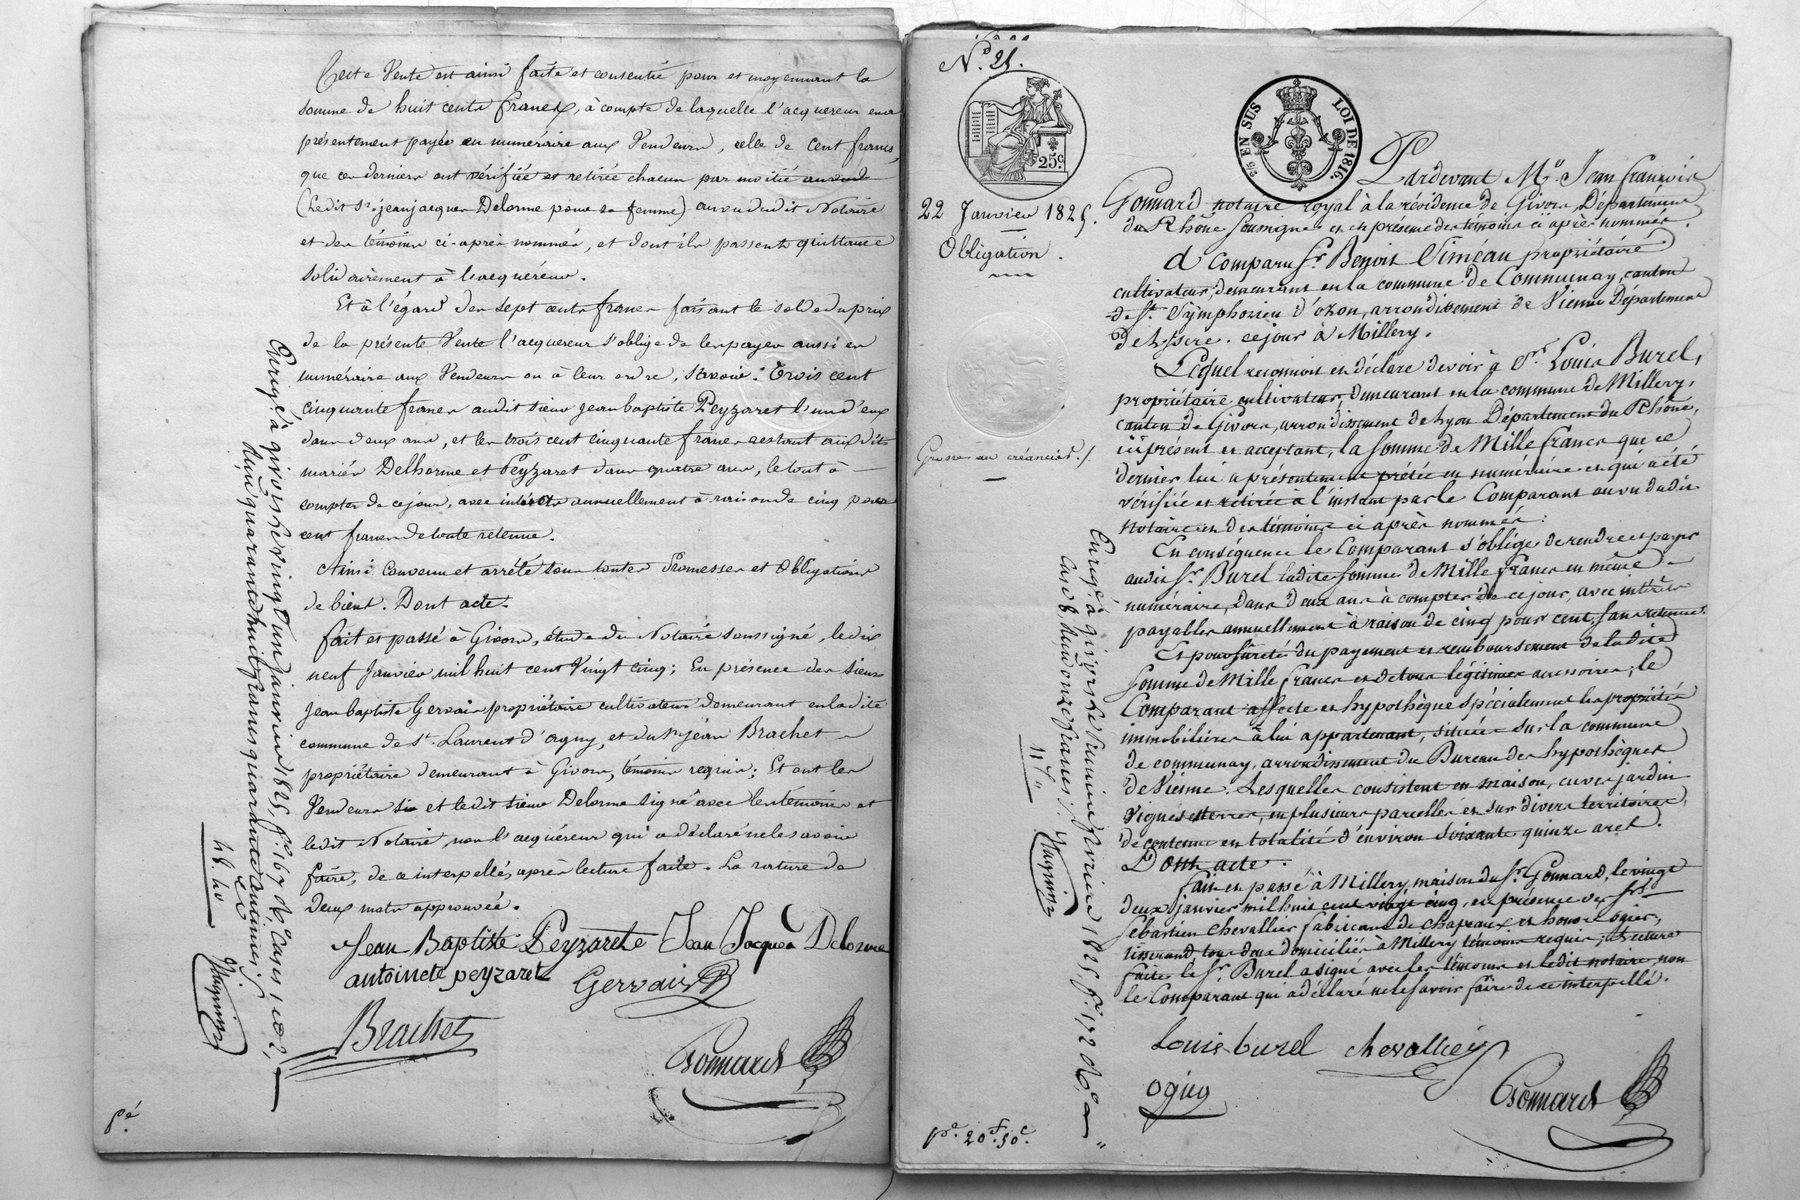 Cette Vente est ainsi faite et consentie pour et moyennant la
somme de huit cents francs, à compte de laquelle l'acquereur en a
présentement payée en numéraire aux Vendeurs, celle de Cent francs,
que ces derniers ont vérifiée et retirée chacun par moitié
(Ledit Sr. jean jacques Delorme pour sa femme) au vu dudit Notaire
et des témoins ci-après nommés, et dont ils passent quittance
solidairement à l'acquéreur.
Et à l'égard des sept cents francs faisant le solde du prix
de la présente Vente l'acquereur s'oblige de les payer aussi en
numéraire aux Vendeurs ou à leur ordre, savoir: Trois cent
cinquante francs audit sieur jean baptiste Peyzaret l'un d'eux
dans deux ans, et les trois cent cinquante francs restant auxdits
mariés Delhorme et Peyzaret dans quatre ans, le tout à
compter de ce jour, avec intérêts annuellement à raison de cinq pour
cent francs de toute retenue.
Ainsi Convenu et arrêté sous toutes Promesses et Obligations
de biens. Dont acte.
fait et passé à Givors, étude du Notaire soussigné, le dix
neuf Janvier mil huit cent Vingt cinq; En présence des sieurs
Jean baptiste Gervais propriétaire cultivateur demeurant en ladite
commune de St. Laurent d'agny, et du Sr. jean Brachet
propriétaire demeurant à Givors, témoins requis; Et ont les
Vendeurs et ledit sieur Delorme signé avec les témoins et
ledit Notaire, non l'acquéreur qui a déclaré ne le savoir
faire, de ce interpellé, après lecture faite. La rature de
Deux mots approuvée.
Jean Baptiste Peyzarete Jean Jacques Delorme
antoinete peyzaret Gervais
Brachet Gonnard
Enrgé. à givors le vingt un janvier 1825, fo. 167 Ro Cases 1 et 2,
Reçu quarante huit francs quarante centimes;
48.40
Pé.
No. 21.
25 c.
25 EN SUS LOI DE 1816.
22 Janvier 1825.
Obligation.
Grosse au créancier./.
Pardevant Me. Jean françois
Gonnard notaire royal à la résidence de Givors Département
du Rhône soussigné et en présence des témoins ci après nommés
A Comparu Sr. Benoit Timéau propriétaire
cultivateur, demeurant en la commune de Communay, canton
de St. Symphorien d'ozon, arrondissement de Vienne Département
de l'Isere. ce jour à Millery.
Lequel reconnoit et déclare devoir à Sr. Louis Burel,
propriétaire cultivateur, demeurant en la commune de Millery,
canton de Givors, arrondissement de Lyon Département du Rhône,
ici présent et acceptant, la somme de Mille francs que ce
dernier lui a présentement prêtée en numéraire et qui a été
vérifiée et retirée à l'instant par le Comparant au vu dudit
notaire et des témoins ci après nommés.
En conséquence le Comparant s'oblige de rendre et payer
audit Sr. Burel ladite somme de Mille francs en même
numéraire, Dans deux ans à compter de ce jour, avec intérêts
payables annuellement à raison de cinq pour cent, sans retenue.
Et pour sûreté du payement et remboursement de ladite
somme de Mille francs et de tous légitimes accessoires, le
Comparant affecte et hypothèque spécialement les propriétés
immobilières à lui appartenant, situées sur la commune
de communay, arrondissement du Bureau des hypothèques
de Vienne. Lesquelles consistent en maison, cuves, jardin
vignes et terres, en plusieurs parcelles et sur divers territoires,
de contenue en totalité d'environ soixante quinze ares.
Dont acte.
fait et passé à Millery, maison du Sr. Gonnard, le vingt
deux janvier mil huit cent vingt cinq, en présence des Srs.
Sébastien Chevallier fabricant de chapeaux, et honoré ogier,
tisserand, tous deux domiciliés à Millery témoins requis, et lecture
faite le Sr. Burel a signé avec les témoins et ledit notaire, non
le Comparant qui a déclaré ne le savoir faire de ce interpellé.
Louis burel chevallier
ogier Gonnard
Enrgé. à givors le février 1825, fo. 172 Ro
Case 8 Reçu onze francs /.
11 f. "
Pé. 20 f. 50 c.